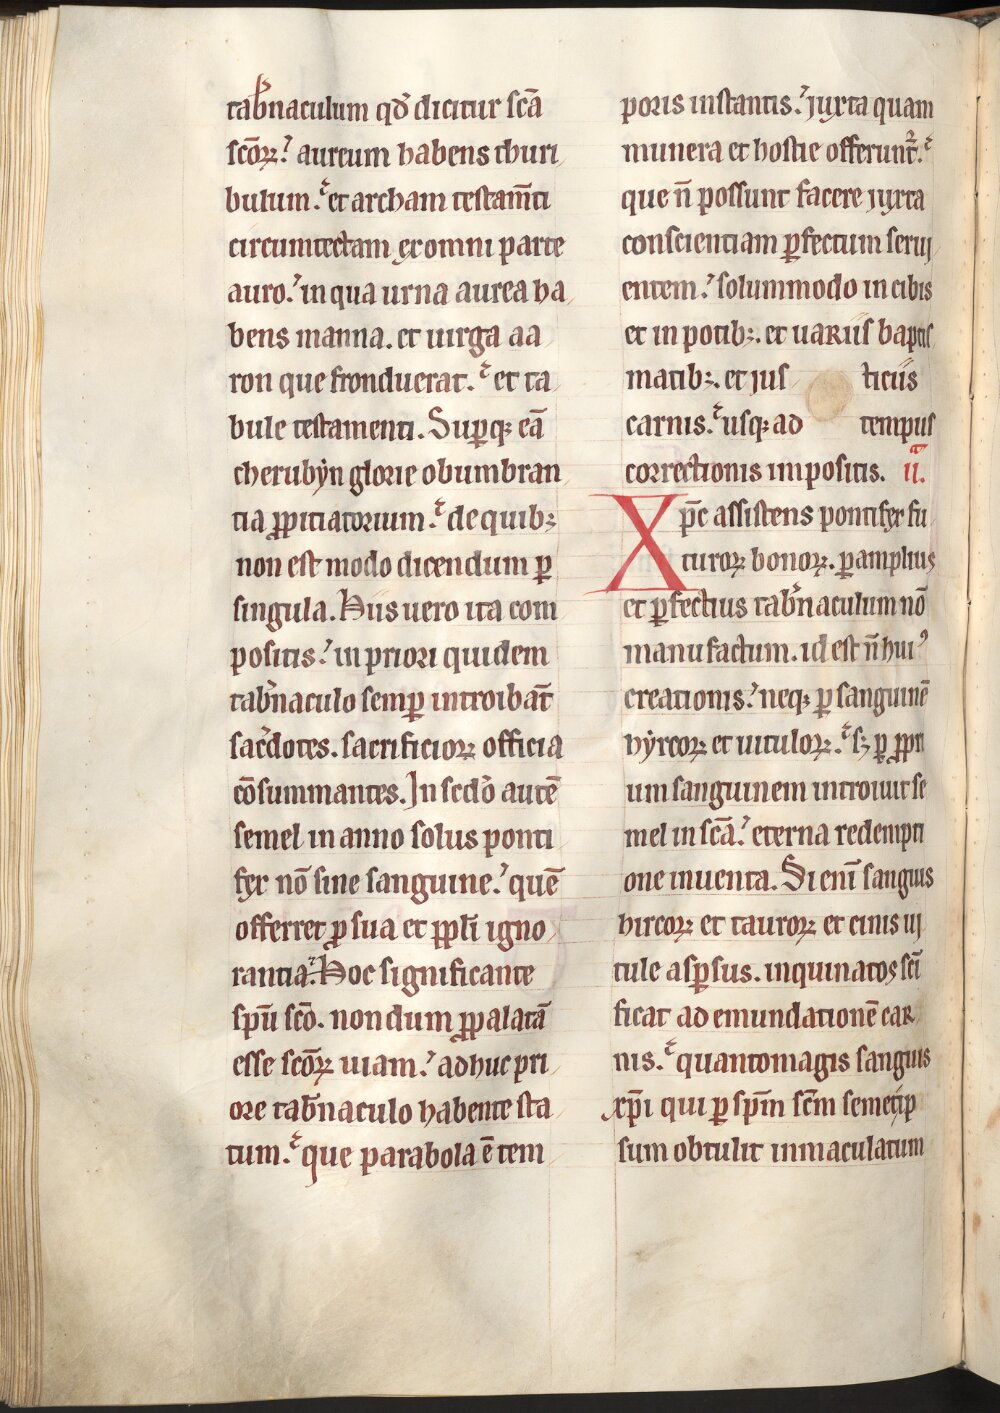 tab̄naculum qđ dicitur sc̄a
sc̄oꝝ. aureum habens thuri
bulum. et archam testam̄ti
circumtectam ex omni parte
auro. in qua urna aurea ha
bens manna. et uirga aa
ron que fronduerat. et ta
bule testamenti. Suꝑqꝫ eā
cherubẏn glorie obumbran
tia ꝓpitiatorium. de quibꝫ
non est modo dicendum ꝑ
singula. Hiis uero ita com
positis. in priori quidem
tab̄naculo semꝑ introibāt
sac̄dotes. sacrificioꝝ officia
cōsummantes. In sc̄do autē
semel in anno solus ponti
fex nō sine sanguine. quē
offerret ꝓ sua et ppl̄i igno
rantia. Hoc significante
sp̄u sc̄o. nondum ꝓpalatā
esse sc̄oꝝ uiam. adhuc pri
ore tab̄naculo habente sta
tum. que parabola ē tem
poris instantis. juxta quam
munera et hostie offerunt̄.
que n̄ possunt facere juxta
conscientiam ꝑfectum serui
entem. solummodo in cibis
et in potibꝫ. et uariis baptis
matibꝫ. et jus ticiis
carnis. usqꝫ ad tempus
correctionis impositis. ii.
Xp̄c assistens pontifex fu
turoꝝ bonoꝝ. ꝑ amplius
et ꝑfectius tab̄naculum nō
manufactum. id est n̄ huiꝰ
creationis. neqꝫ ꝑ sanguinē
hẏrcoꝝ et uituloꝝ. sꝫ ꝑ ꝓpri
um sanguinem introiuit se
mel in sc̄a. eterna redempti
one inuenta. Si enī sanguis
hircoꝝ et tauroꝝ et cinis ui
tule asꝑsus. inquinatos sc̄i
ficat ad emundationē car
nis. quantomagis sanguis
xp̄i qui ꝑ sp̄m sc̄m semetip
sum obtulit inmaculatum